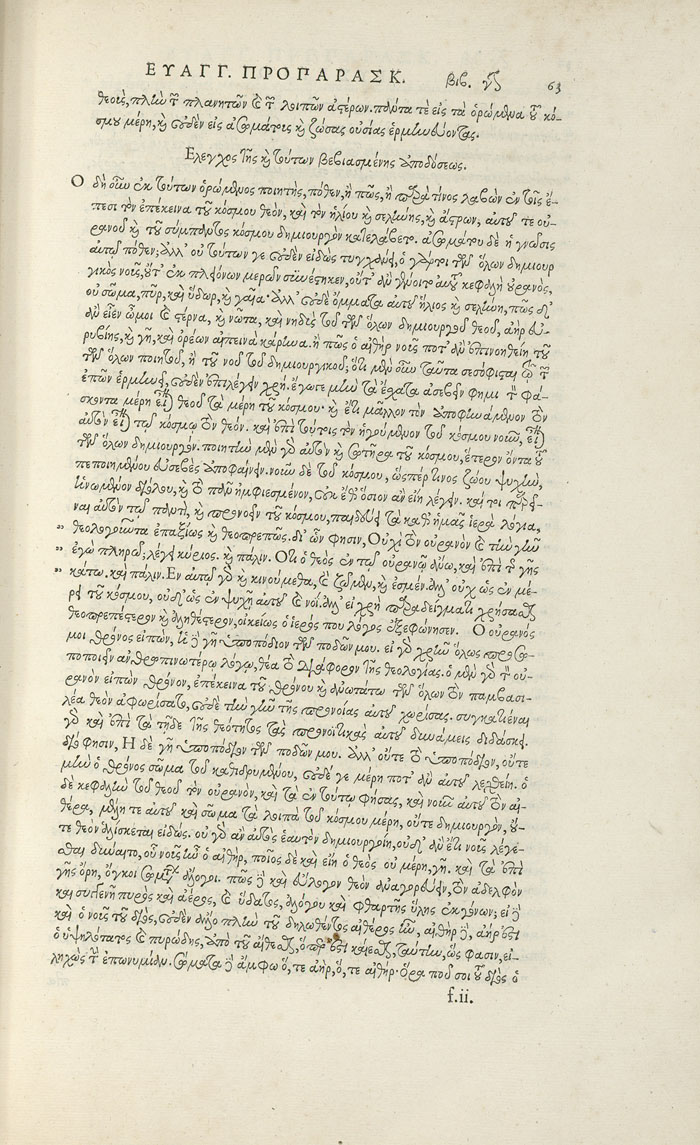 ΕΥΑΓΓ. ΠΡΟΠΑΡΑΣΚ. βιβ. γ 63
θεοὺς, πλὴν τῶν πλανητῶν καὶ τῶν λοιπῶν ἀστέρων. πάντα τε εἰς τὰ ὁρώμενα τοῦ κό-
σμου μέρη, καὶ οὐδὲν εἰς ἀσωμάτους καὶ ζώσας οὐσίας ἑρμηνεύοντας.
Ελεγχος τῆς καὶ τούτων βεβιασμένης ἀποδόσεως.
Ο δὴ οὖν ἐκ τούτων ὁρώμενος ποιητὴς, πόθεν, ἢ πῶς, ἢ παρὰ τίνος λαβὼν ἐν τοῖς ἔ-
πεσι τὸν ἐπέκεινα τοῦ κόσμου θεὸν, καὶ τὸν ἡλίου καὶ σελήνης, καὶ ἄστρων, αὐτοῦ τε οὐ-
ρανοῦ καὶ τοῦ σύμπαντος κόσμου δημιουργὸν κατελάβετο. ἀσωμάτου δὲ ἡ γνῶσις
αὐτῷ πόθεν; ἀλλ' οὐ τούτων γε οὐδὲν εἰδὼς τυγχάνει, ὁ γάρ τοι τῶν ὅλων δημιουρ
γικὸς νοῦς, οὔτ' ἐκ πλειόνων μερῶν συνέστηκεν, οὔτ' ἂν γένοιτο αὐτοῦ κεφαλὴ οὐρανὸς,
οὐ σῶμα, πῦρ, καὶ ὕδωρ, καὶ γαῖα. ἀλλ' οὐδὲ ὄμματα αὐτοῦ ἥλιος καὶ σελήνη, πῶς δ'
ἂν εἶεν ὦμοι καὶ στέρνα, καὶ νῶτα, καὶ νηδὺς τοῦ τῶν ὅλων δημιουργοῦ θεοῦ, ἀὴρ εὐ-
ρυβίης, καὶ γῆ, καὶ ὀρέων αἰπεινὰ κάρηνα. ἢ πῶς ὁ αἰθὴρ νοῦς ποτ' ἂν ἐπινοηθείη τοῦ
τῶν ὅλων ποιητοῦ, ἢ τοῦ νοῦ τοῦ δημιουργικοῦ; ὅτι μὲν οὖν ταῦτα σεσόφισται ὁ τῶν
ἐπῶν ἑρμηνεὺς, οὐδὲν ἐπιλέγειν χρή. ἔγωγε μὴν τὰ ἔσχατα ἀσεβεῖν φημι τὸν φά-
σκοντα μέρη εἶναι θεοῦ τὰ μέρη τοῦ κόσμου. καὶ ἔτι μᾶλλον τὸν ἀποφηνάμενον τὸν
αὐτὸν εἶναι τῷ κόσμῳ τὸν θεόν. καὶ ἐπὶ τούτοις τὸν ἡγούμενον τοῦ κόσμου νοῦν, εἶναι
τῶν ὅλων δημιουργόν. ποιητὴν μὲν γὰρ αὐτὸν καὶ σωτῆρα τοῦ κόσμου, ἕτερον ὄντα τοῦ
πεποιημένου εὐσεβὲς ἀποφαίνειν. νοῦν δὲ τοῦ κόσμου, ὥσπερ τινος ζώου ψυχὴν,
ἡνωμένον διόλου, καὶ τὸ πᾶν ἠμφιεσμένον, οὐκ ἔθ' ὅσιον ἂν εἴη λέγειν. καί τοι παρεῖ-
ναι αὐτὸν τῷ παντὶ, καὶ προνοεῖν τοῦ κόσμου, παιδεύει τὰ καθ' ἡμᾶς ἱερὰ λόγια,
θεολογοῦντα ἐπαξίως καὶ θεοπρεπῶς. δι' ὧν φησιν, Οὐχὶ τὸν οὐρανὸν καὶ τὴν γῆν
„ ἐγὼ πληρῶ; λέγει κύριος. καὶ πάλιν. Οτι ὁ θεὸς ἐν τῷ οὐρανῷ ἄνω, καὶ ἐπὶ τῆς γῆς
„ κάτω. καὶ πάλιν. Εν αὐτῷ γὰρ καὶ κινούμεθα, καὶ ζῶμεν, καὶ ἐσμέν. ἀλλ' οὐχ ὡς ἐν μέ-
ρει τοῦ κόσμου, οὐδ' ὡς ἐν ψυχῇ αὐτοῦ καὶ νοΐ. ἀλλ' εἰ χρὴ παραδείγματι χρήσασθαι
θεοπρεπέστερον καὶ ἀληθέστερον, οἰκείως ὁ ἱερός που λόγος ἐξεφώνησεν. Ο οὐρανός
μοι θρόνος εἰπὼν, ἡ δὲ γῆ ὑποπόδιον τῶν ποδῶν μου. εἰ γὰρ χρὴν ὅλως προσω-
ποποιεῖν ἀνθρωπινωτέρῳ λόγῳ, θέα τὸ διάφορον τῆς θεολογίας. ὁ μὲν γὰρ τὸν οὐ-
ρανὸν εἰπὼν θρόνον, ἐπέκεινα τοῦ θρόνου καὶ ἀνωτάτω τῶν ὅλων τὸν παμβασι-
λέα θεὸν ἀφωρίσατο, οὐδὲ τὴν γῆν τῆς προνοίας αὐτοῦ χωρίσας. συγκατιέναι
γὰρ καὶ ἐπὶ τὰ τῇδε τῆς θεότητος τὰς προνοητικὰς αὐτοῦ δυνάμεις διδάσκει.
διό φησιν, Η δὲ γῆ ὑποπόδιον τῶν ποδῶν μου. ἀλλ' οὔτε τὸ ὑποπόδιον, οὔτε
μὴν ὁ θρόνος σῶμα τοῦ καθιδρυμένου, οὐδέ γε μέρη ποτ' ἂν αὐτοῦ λεχθείη. ὁ
δὲ κεφαλὴν τοῦ θεοῦ τὸν οὐρανὸν, καὶ τὰ ἐν τούτῳ φήσας, καὶ νοῦν αὐτοῦ τὸν αἰ-
θέρα, μέλη τε αὐτοῦ καὶ σῶμα τὰ λοιπὰ τοῦ κόσμου μέρη, οὔτε δημιουργὸν, οὔ-
τε θεὸν ἁλίσκεται εἰδώς. οὐ γὰρ ἂν αὐτὸς ἑαυτὸν δημιουργοίη, οὐδ' ἂν ἔτι νοῦς λέγε-
σθαι δύναιτο, οὗ νοῦς ἦν ὁ αἰθὴρ, ποῖος δὲ καὶ εἴη ὁ θεὸς οὗ μέρη, γῆ. καὶ τὰ ἐπὶ
γῆς ὄρη, ὄγκοι σωμάτων ἄλογοι. πῶς δὲ καὶ εὔλογον θεὸν ἀναγορεύειν, τὸν ἀδελφὸν
καὶ συγγενῆ πυρὸς καὶ ἀέρος, καὶ ὕδατος, ἀλόγου καὶ φθαρτῆς ὕλης ἐκγόνων; εἰ δὲ
καὶ ὁ νοῦς τοῦ διὸς, οὐδὲν ἄλλο πλὴν τοῦ δηλωθέντος αἰθέρος ἦν, αἰθὴρ δὲ, ἀήρ ἐστι
ὁ ὑψηλότατος καὶ πυρώδης, ἀπὸ τοῦ αἴθεσθαι, ὅπερ ἐστὶ καίεσθαι, ταύτην, ὥς φασιν, εἰ-
ληχὼς τὴν ἐπωνυμίαν. σώματα δὲ ἄμφω ὅ, τε ἀὴρ, ὅ, τε αἰθήρ. ὅρα ποῦ σοι τοῦ διὸς ὁ
f.ii.